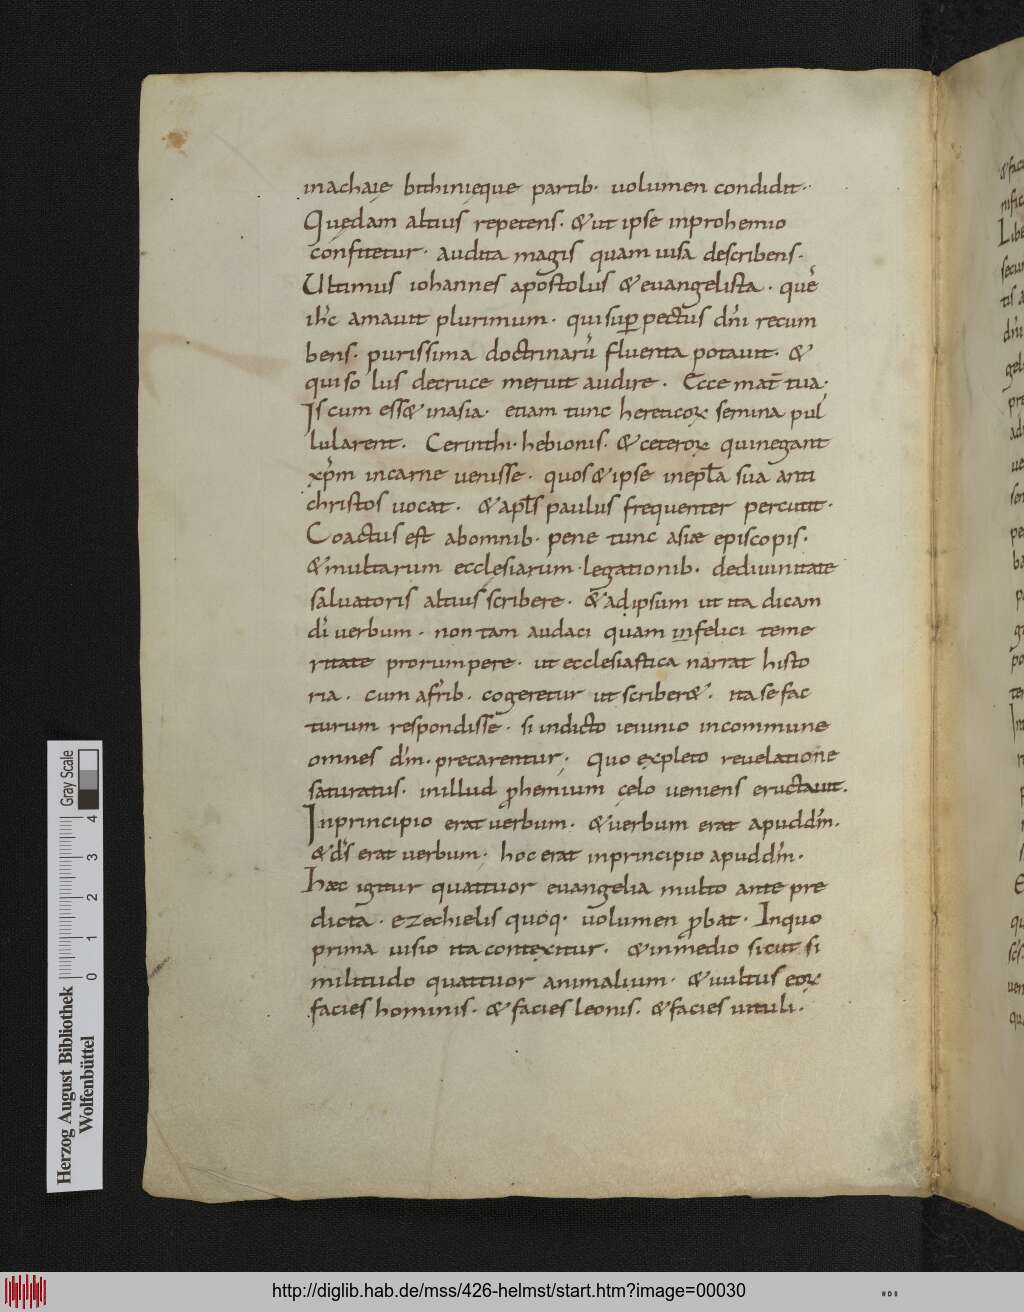 inachaię bithinięque partib· uolumen condidit··
Quędam altius repetens· & ut ipse inprohemio
confitetur· audita magis quam uisa describens·
Ultimus iohannes apostolus & euangelista· quē
ih̅c amauit plurimum· qui sup̲ pectus dn̅i recum
bens· purissima doctrinarū fluenta potauit· &
qui so lus decruce meruit audire· Ecce mat̅ tua·
Is cum ess& inasia· etiam tunc hereticoꝝ semina pul
lularent· Cerinthi· hebionis· & ceteroꝝ quinegant
xp̅m incarne uenisse· quos & ipse inepl̅a sua anti
christos uocat· & apl̅s paulus frequenter percutit·
Coactus est abomnib· pene tunc asiæ episcopis·
& multarum ecclesiarum· legationib· dediuinitate
saluatoris altius scribere· & adipsum ut ita dicam
di̅ uerbum· non tam audaci quam infelici teme
ritate prorumpere· ut ecclesiastica narrat histo
ria· cum afr̅ib· cogeretur ut scriber&· ita se fac
turum respondisse· si indicto ieiunio incommune
omnes dm̅· precarentur· quo expleto reuelatione
saturatus· inillud ꝓhemium cęlo ueniens eructauit·
Inprincipio erat uerbum· & uerbum erat apud dm̅·
& ds̅ erat uerbum· hoc erat inprincipio apud dm̅·
Hæc igitur quattuor euangelia multo ante pre
dicta· ezechielis quoq· uolumen ꝓbat· Inquo
prima uisio ita contexitur· & inmedio sicut si
militudo quattuor animalium· & uultus eoꝝ
facies hominis· & facies leonis· & facies uituli·
Herzog August Bibliothek
Wolfenbüttel
0 1 2 3 4
Gray Scale
http://diglib.hab.de/mss/426-helmst/start.htm?image=00030